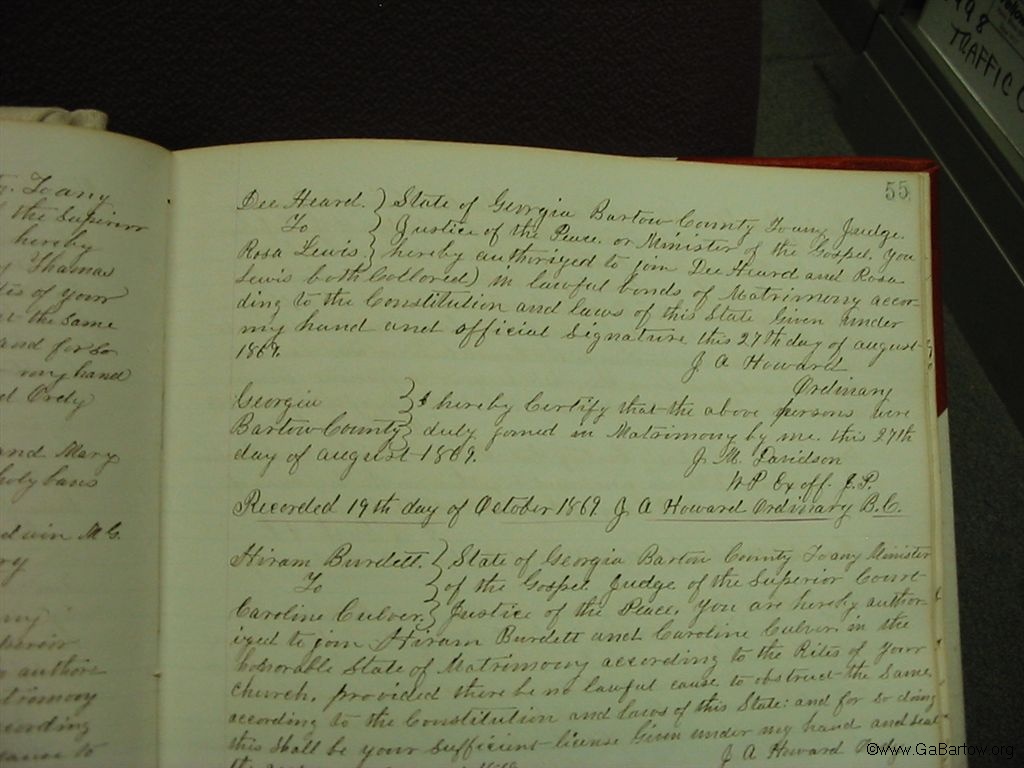 55
Dee Heard. } State of Georgia Bartow County To any Judge.
To } Justice of the Peace. or Minister of the Gospel, You
Rosa Lewis } hereby authorized to join Dee Heard and Rosa
Lewis both Collored) in lawful bonds of Matrimony accor-
ding to the Constitution and laws of this State Given under
my hand and official Signature this 27th day of august
1869.
J A Howard
Ordinary
Georgia } I hereby Certify that the above persons were
Bartow County } duly joined in Matrimony by me. this 27th
day of august 1869.
J. M. Davidson
N P Ex off. J. P.
Recorded 19th day of October 1869 J A Howard Ordinary B. C.
Hiram Burdett. } State of Georgia Bartow County To any Minister
To } of the Gospel Judge of the Superior Court
Caroline Culver } Justice of the Peace, You are hereby author-
ized to join Hiram Burdett and Caroline Culver in the
honorable State of Matrimony according to the Rites of Your
church. provided there be no lawful cause to obstruct the Same
according to the Constitution and laws of this State: and for so doing
this Shall be your Sufficient license Given under my hand and seal
J A Howard
To any
the Superior
hereby
Thomas
of your
the Same
and for so
my hand
Ordy
and Mary
holy bans
my
authori
trimony
cording
cause to
TRAFFIC
©www.GaBartow.org